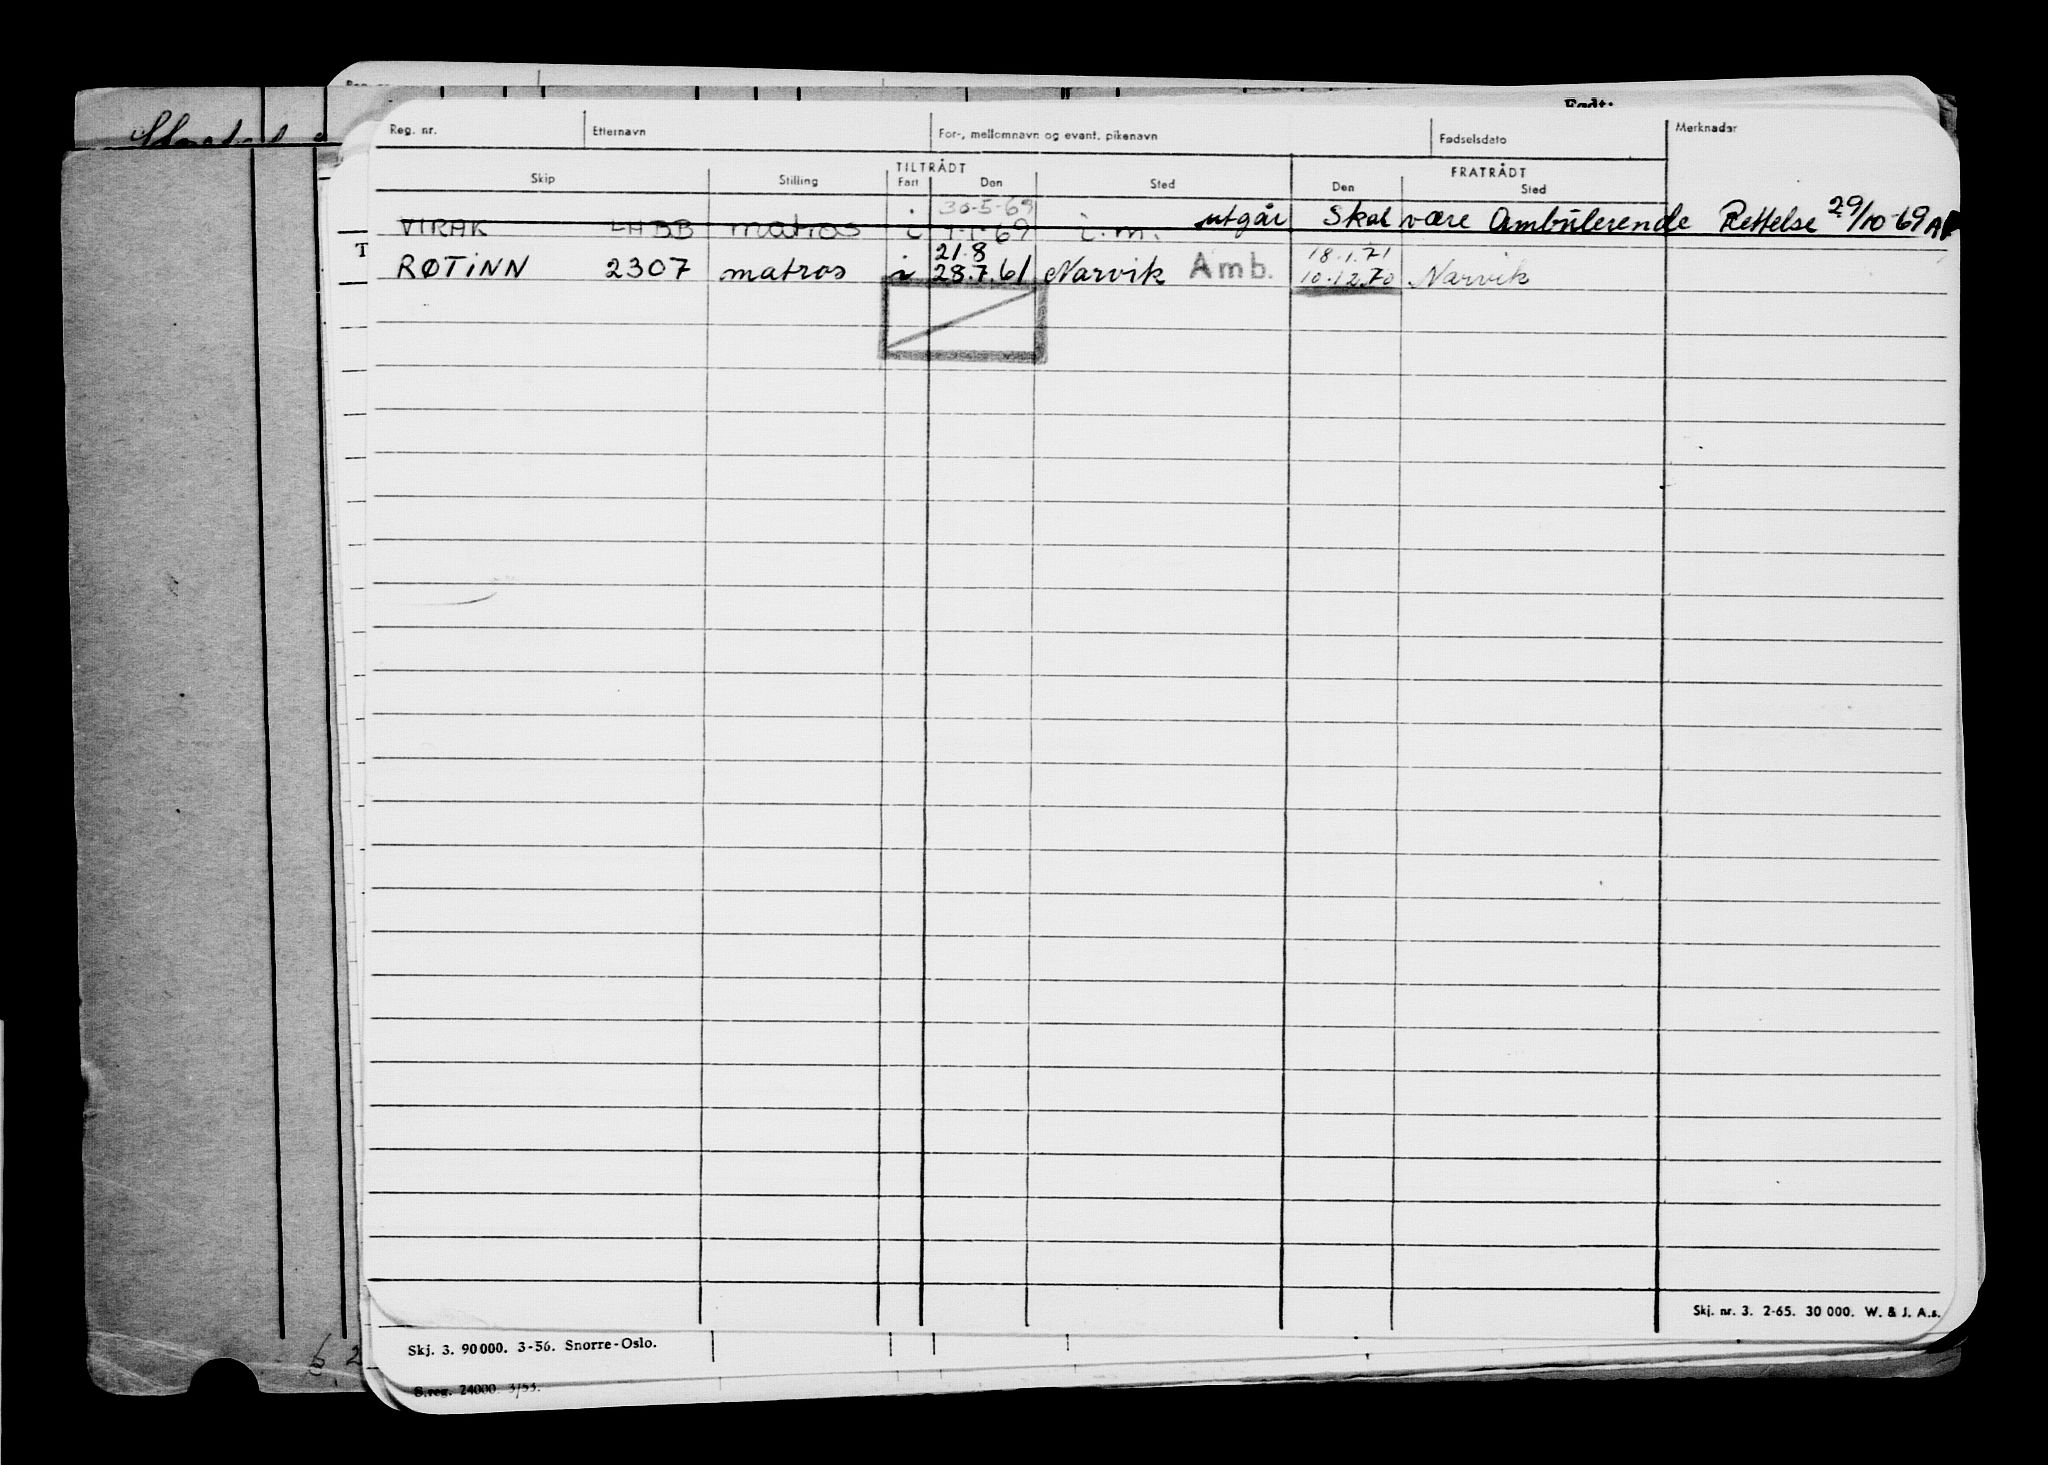 Født:
Reg. nr. Etternavn For-, mellomnavn og event. pikenavn Fødselsdato Merknader
TILTRÅDT FRATRÅDT
Skip Stilling Fart Den Sted Den Sted
30-5-69
VIRAK LHBB matros i 1-1-69 i.m. utgår Skal være Ambulerende Rettelse 29/10-69
21.8 18.1.71
RØTINN 2307 matros i 28.7.61 Narvik Amb. 10.12.70 Narvik
T
Skj. nr. 3. 2-65. 30 000. W. & J. A.s.
Skj. 3. 90000. 3-56. Snorre-Oslo.
S.reg. 24000. 3/53.
6 2